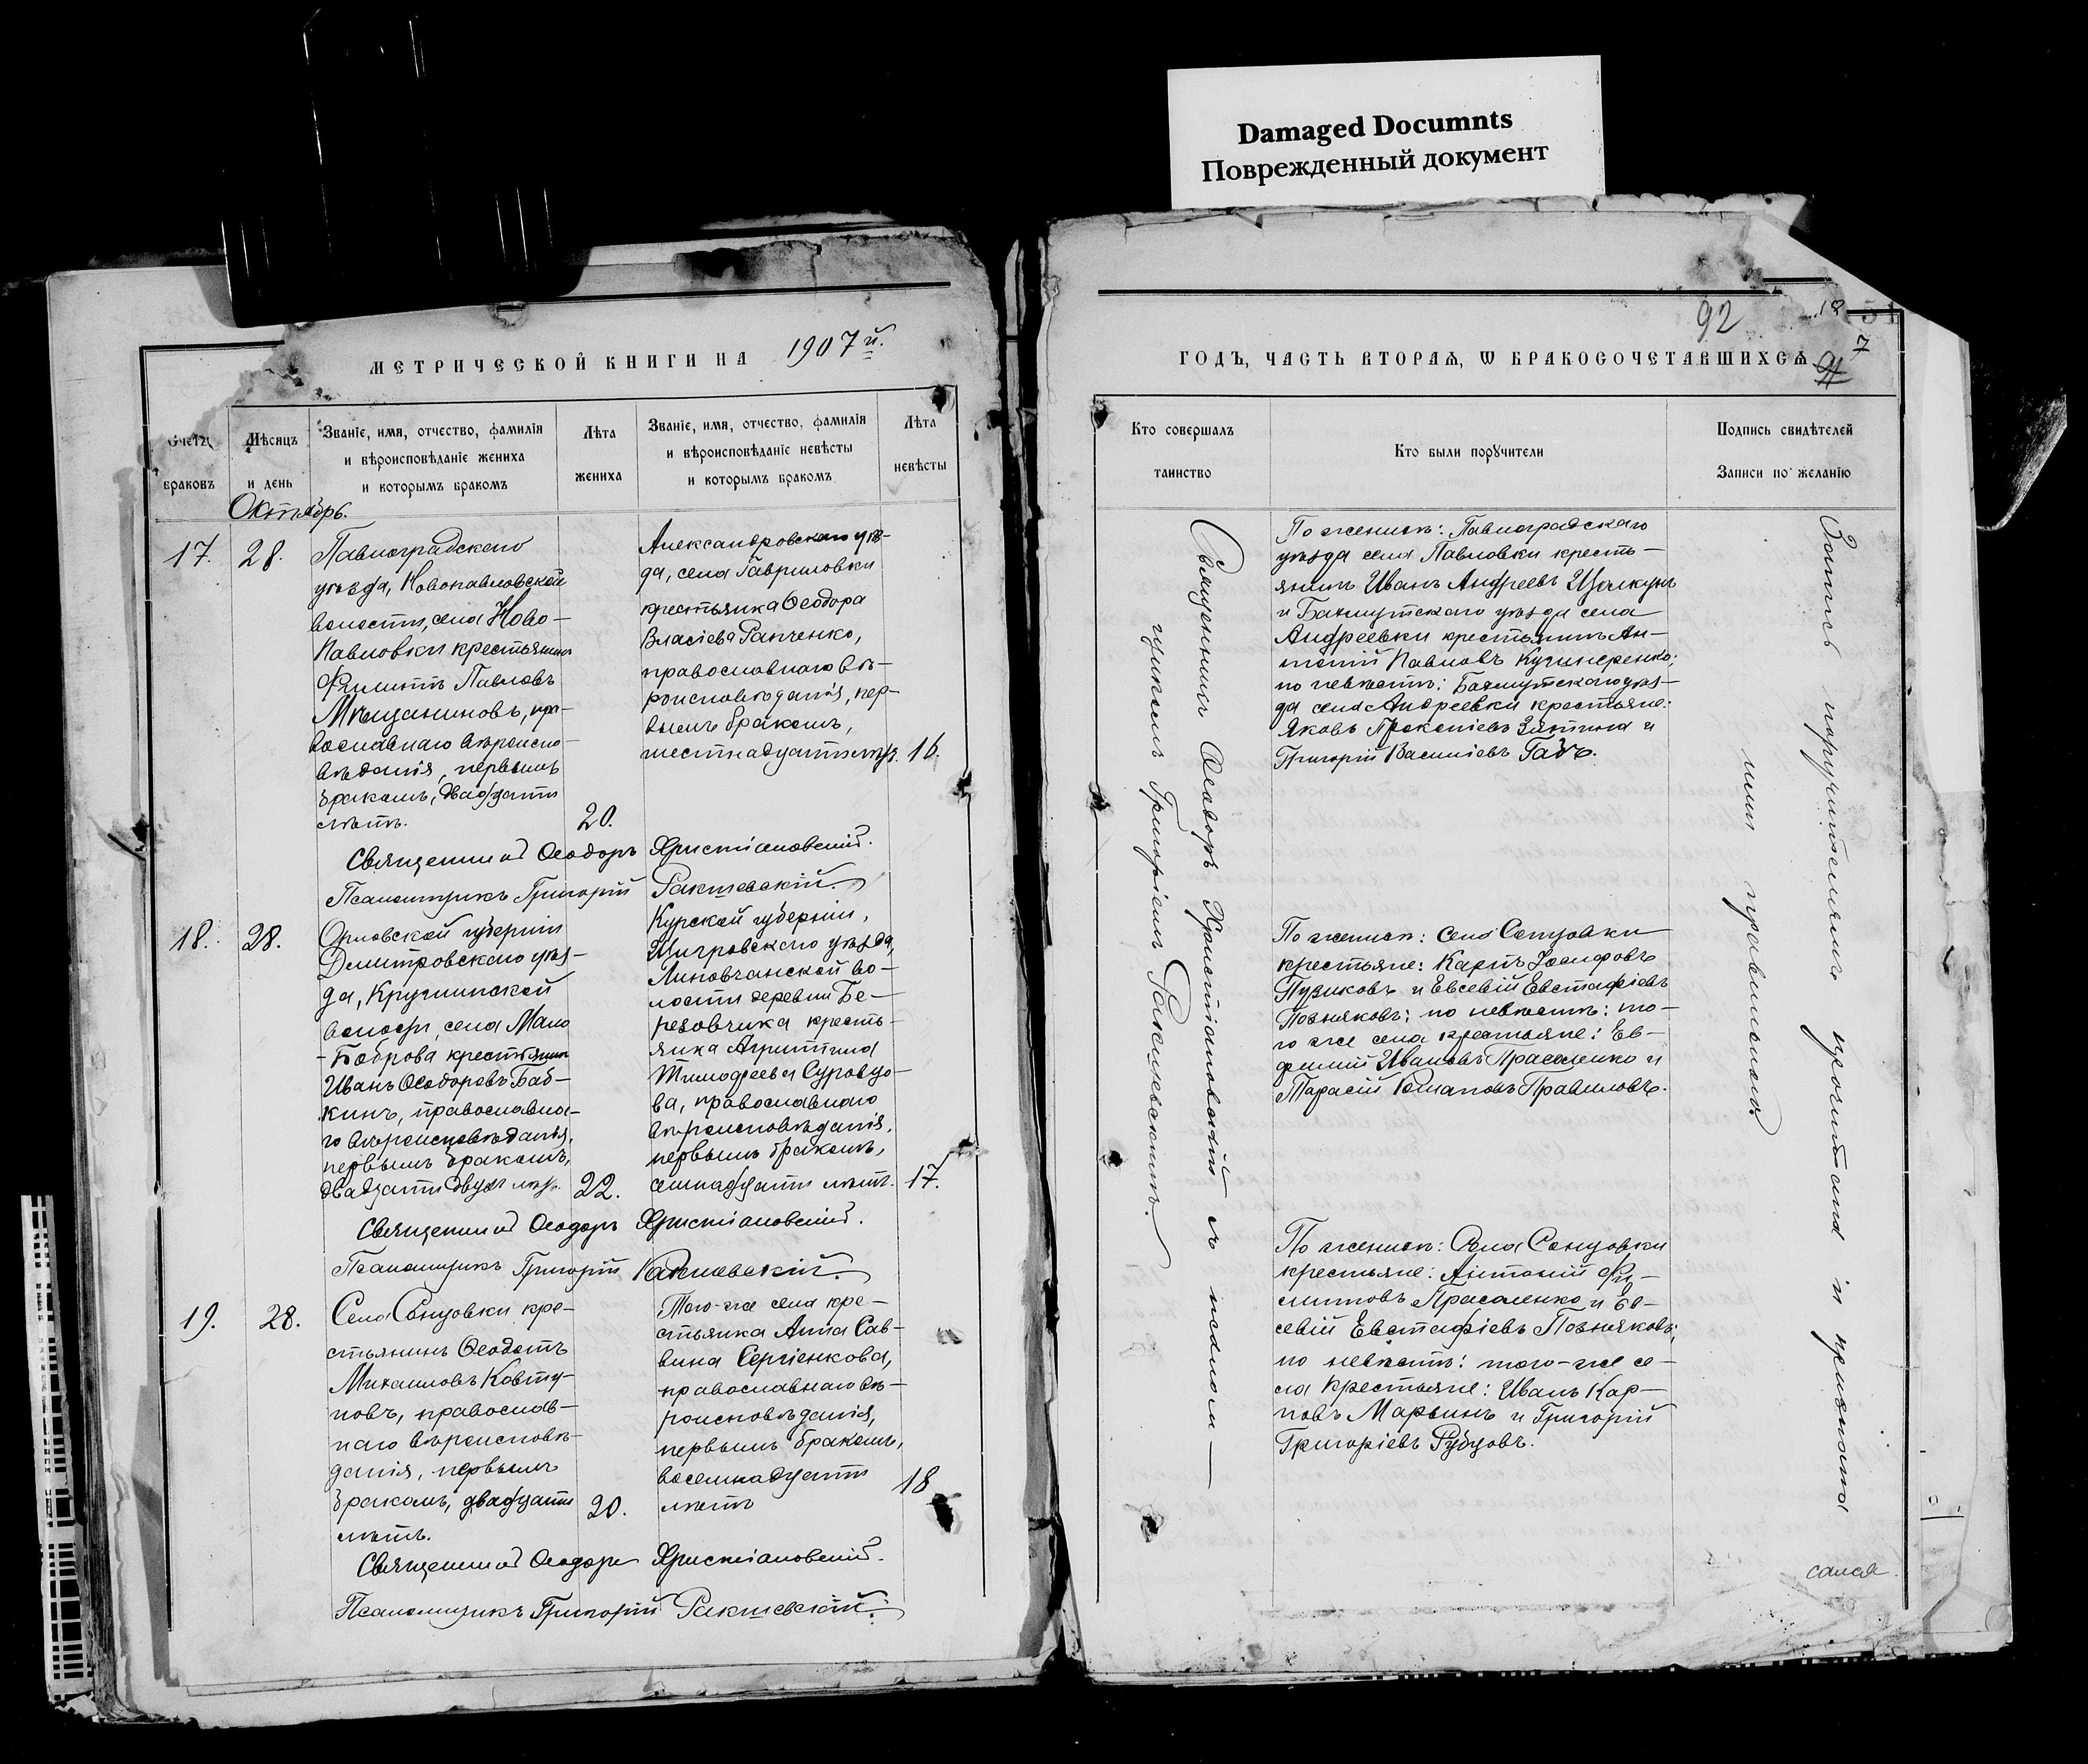 Damaged Documnts
Поврежденный документ
МЕТРИЧЕСКОЙ КНИГИ НА 1907 й.
Счетъ
браковъ
Мѣсяцъ
и день
Званіе, имя, отчество, фамилія
и вѣроисповѣданіе жениха
и которымъ бракомъ
Лѣта
жениха
Званіе, имя, отчество, фамилія
и вѣроисповѣданіе невѣсты
и которымъ бракомъ
Лѣта
невѣсты
Октябрь.
17.
28.
Павлоградскаго
уѣзда, Новопавловской
волости, села Ново-
Павловки крестьянинъ
Филиппъ Павловъ
Мѣщаниновъ, пра-
вославнаго вѣроиспо-
вѣданія, первымъ
бракомъ, двадцати
лѣтъ.
20.
Александровскаго уѣз-
да, села Гавриловки
крестьянка Ѳеодора
Власіева Ранченко,
православнаго вѣ-
роисповѣданія, пер-
вымъ бракомъ,
шестнадцати лѣтъ.
16.
Священникъ Ѳеодоръ Христіановскій.
Псаломщикъ Григорій Ракшевскій.
18.
28.
Орловской губерніи
Дмитровскаго уѣз-
да, Круглинской
волости, села Мало
-Боброва крестьянинъ
Иванъ Ѳеодоровъ Баб-
кинъ, православна-
го вѣроисповѣданія,
первымъ бракомъ,
двадцати двухъ лѣтъ.
22.
Курской губерніи,
Щигровскаго уѣзда,
Липовчанской во-
лости деревни Бе-
резовчика кресть-
янка Агриппина
Тимофеева Суровцо-
ва, православнаго
вѣроисповѣданія,
первымъ бракомъ,
семнадцати лѣтъ.
17.
Священникъ Ѳеодоръ Христіановскій.
Псаломщикъ Григорій Ракшевскій.
19.
28.
Села Сонцовки кре-
стьянинъ Ѳеодотъ
Михаиловъ Ковту-
новъ, православ-
наго вѣроисповѣ-
данія, первымъ
бракомъ, двадцати
лѣтъ.
20.
Того-же села кре-
стьянка Анна Сав-
вина Сергіенкова,
православнаго вѣ-
роисповѣданія,
первымъ бракомъ,
восемнадцати
лѣтъ
18
Священникъ Ѳеодоръ Христіановскій.
Псаломщикъ Григорій Ракшевскій.
92
18
7
ГОДЪ, ЧАСТЬ ВТОРАЯ, Ѡ БРАКОСОЧЕТАВШИХСЯ
Кто совершалъ
таинство
Кто были поручители
Подпись свидѣтелей
Записи по желанію
Священникъ Ѳеодоръ Христіановскій съ псалом-
щикомъ Григоріемъ Ракшевскимъ.
По женихѣ: Павлоградскаго
уѣзда села Павловки кресть-
янинъ Иванъ Андреевъ Щолкунъ
и Бахмутскаго уѣзда села
Андреевки крестьянинъ Ан-
тоній Павловъ Кушнеренко;
по невѣстѣ: Бахмутскаго уѣз-
да села Андреевки крестьяне:
Яковъ Прокопіевъ Зятина и
Григорій Василіевъ Габъ.
По женихѣ: Села Сонцовки
крестьяне: Карпъ Іосифовъ
Пузиковъ и Евсевій Евстафіевъ
Позняковъ; по невѣстѣ: то-
го же села крестьяне: Ев-
фимій Ивановъ Прасоленко и
Тарасій Романовъ Правиловъ.
По женихѣ: Села Сонцовки
крестьяне: Антоній Фи-
липповъ Прасоленко и Ев-
севій Евстафіевъ Позняковъ;
по невѣстѣ: того-же се-
ла крестьяне: Иванъ Кар-
повъ Марьинъ и Григорій
Григоріевъ Рубцовъ.
Запись поручителямъ прочитана и признана
ними правильною.